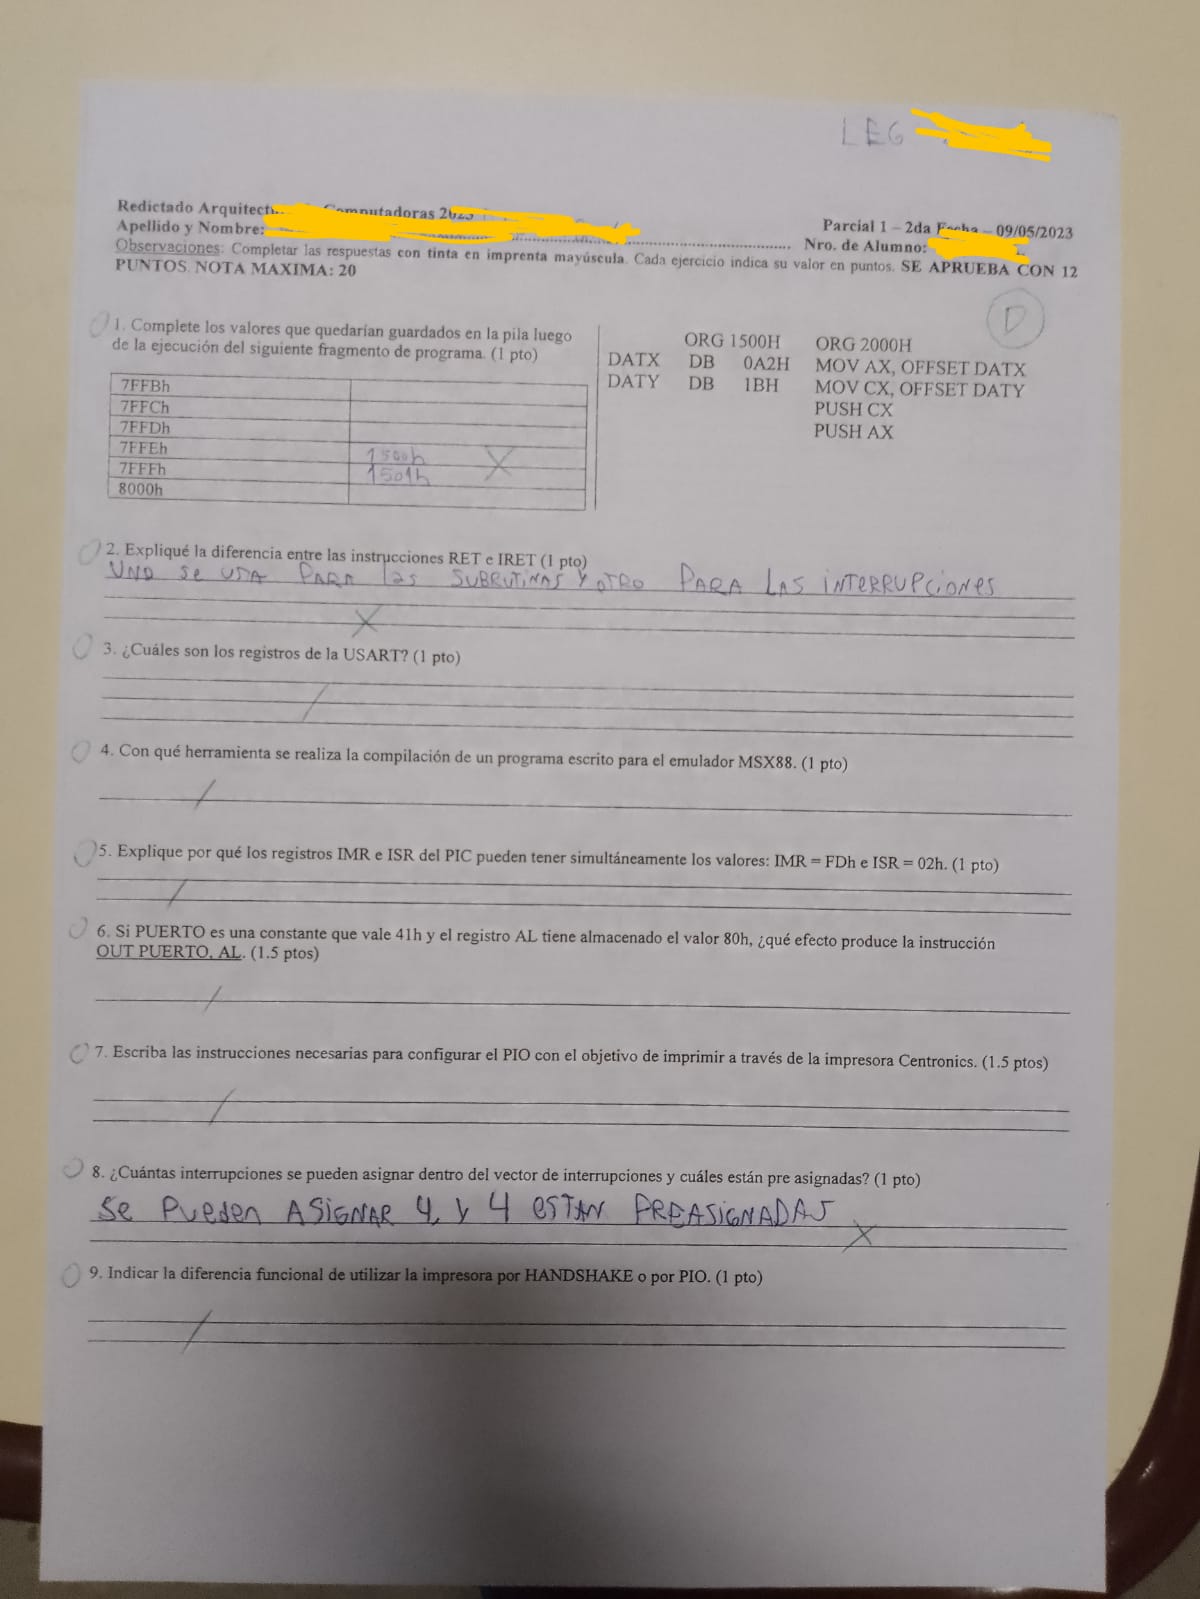 LEG
Redictado Arquitect
Computadoras 2023
Parcial 1 – 2da Fecha – 09/05/2023
Apellido y Nombre:
Nro. de Alumno:
Observaciones: Completar las respuestas con tinta en imprenta mayúscula. Cada ejercicio indica su valor en puntos. SE APRUEBA CON 12
PUNTOS. NOTA MAXIMA: 20
D
1. Complete los valores que quedarían guardados en la pila luego
de la ejecución del siguiente fragmento de programa. (1 pto)
7FFBh
7FFCh
7FFDh
7FFEh 1500h X
7FFFh 1501h
8000h
ORG 1500H
DATX DB 0A2H
DATY DB 1BH
ORG 2000H
MOV AX, OFFSET DATX
MOV CX, OFFSET DATY
PUSH CX
PUSH AX
2. Expliqué la diferencia entre las instrucciones RET e IRET (1 pto)
UNO Se USA PARA las SUBRUTINAS Y OTRO PARA LAS iNTeRRUPCiONeS
X
3. ¿Cuáles son los registros de la USART? (1 pto)
4. Con qué herramienta se realiza la compilación de un programa escrito para el emulador MSX88. (1 pto)
5. Explique por qué los registros IMR e ISR del PIC pueden tener simultáneamente los valores: IMR = FDh e ISR = 02h. (1 pto)
6. Si PUERTO es una constante que vale 41h y el registro AL tiene almacenado el valor 80h, ¿qué efecto produce la instrucción
OUT PUERTO, AL. (1.5 ptos)
7. Escriba las instrucciones necesarias para configurar el PIO con el objetivo de imprimir a través de la impresora Centronics. (1.5 ptos)
8. ¿Cuántas interrupciones se pueden asignar dentro del vector de interrupciones y cuáles están pre asignadas? (1 pto)
Se Pueden ASiGNAR 4, y 4 eSTAN PREASiGNADAS
X
9. Indicar la diferencia funcional de utilizar la impresora por HANDSHAKE o por PIO. (1 pto)